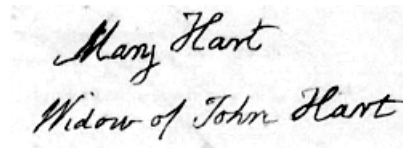 Mary Hart
Widow of John Hart